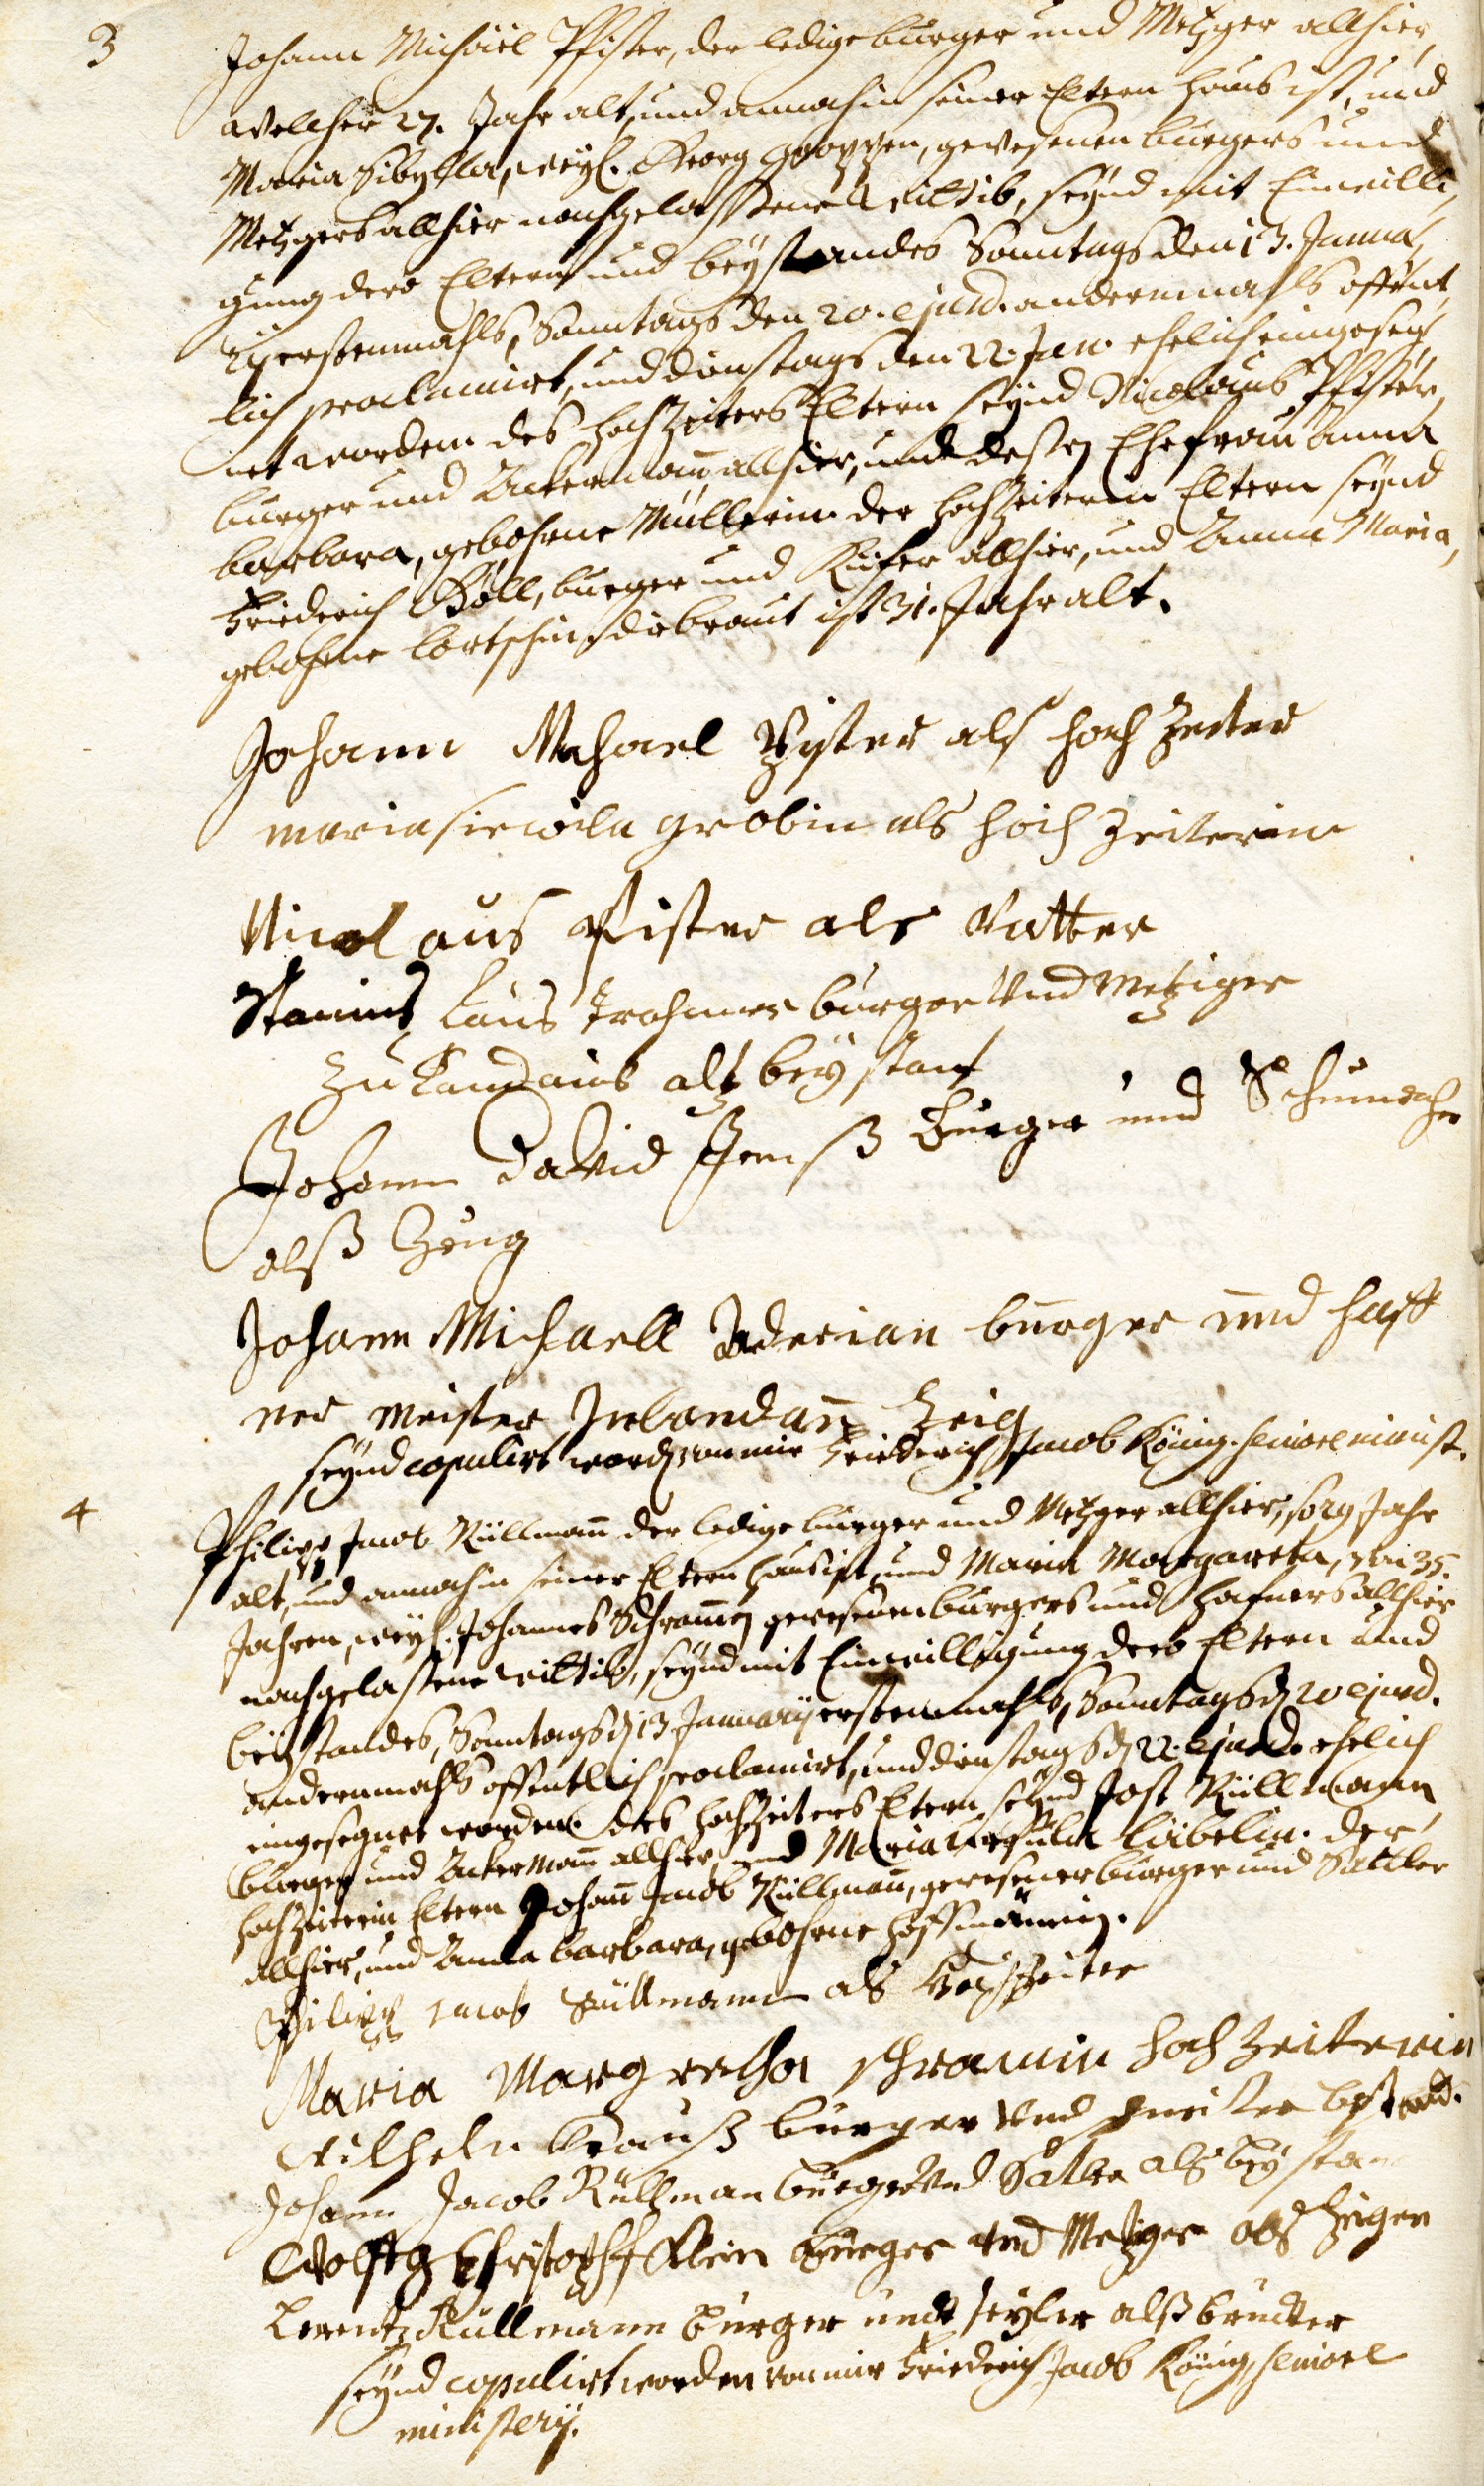 3 Johann Michäel Pfister, der ledige burger und Metzger allhier,
welcher 27. Jahr alt, und annoch in seiner Eltern hauß ist, und
Maria Sibylla, weyl. Georg Groppen, gewesenen burgers und
Metzgers allhier nachgelaßene Wittib, seynd mit Einwilli-
gung dero Eltern und beystandes Sonntags den 13. Janua-
rij erstenmahls, Sonntags den 20. ejusd. andermmahls offent-
lich proclamirt, und dienstags den 22. Jan. ehelich eingeseg-
net worden. des hochzeiters Eltern seynd Nicolaus Pfister,
burger und Ackermañ allhier, und deßen Ehefrau Anna
barbara, gebohrne Müllerin. der hochzeiterin Eltern seynd
Friederich Böll, burger und Kiefer allhier, und Anna Maria,
gebohrne Cortschin, die braut ist 31. Jahr alt.
Johann Mchael Pfister als hoch Zeiter
maria siewila grobin als hoch Zeiterin
Nicol aus Pfister als Vatter
Stanins Laus Trahmer burger Und Metziger
Zu Landau als bey stant
Johann David Hemß Burger und Schumacher
alß Zeug
Johann Michaell Aderian burger und haff
ner meister In landau Zeig
seynd copulirt word. von mir Friederich Jacob König, seniore minist.
4 Philipp Jacob Rüllmañ der ledige burger und Metzger allhier, so 29 Jahr
alt, und annoch in seiner Eltern hauß ist, und Maria Margareta, von 35.
Jahren, weyl. Johannes Schramen gewesenen burgers und hafners allhier
nachgelaßene Wittib, seynd mit Einwilligung dero Eltern und
beystandes, Sonntags d. 13. Januarij erstenmahls, Sonntags d. 20 ejusd.
andermmahls offentlich proclamirt, und dienstags d. 22. ejusd. ehelich
eingesegnet worden. des hochzeiters Eltern seynd Jost Rüllmann
burger und Ackermañ allhier, und Maria Ursula Cäbelin. der
hochzeiterin Eltern Johañ Jacob Rüllmañ, gewesener burger und Sattler
allhier, und Anna barbara, gebohrne hoffmännin.
Philipp Jacob Rüllmann als Hochzeiter
Maria Margretha schramin hoch Zeiterin
Wilhelm Krauß burger Und bystand.
Johann Jacob Rüllman burger Und Satler als bey stan
Wolffg Christoph Klein burger und Metzger als Zeigen
Lorentz Rullmann burger undt seyler alß bruder
seynd copulirt worden von mir Friederich Jacob König, seniore
ministerij.